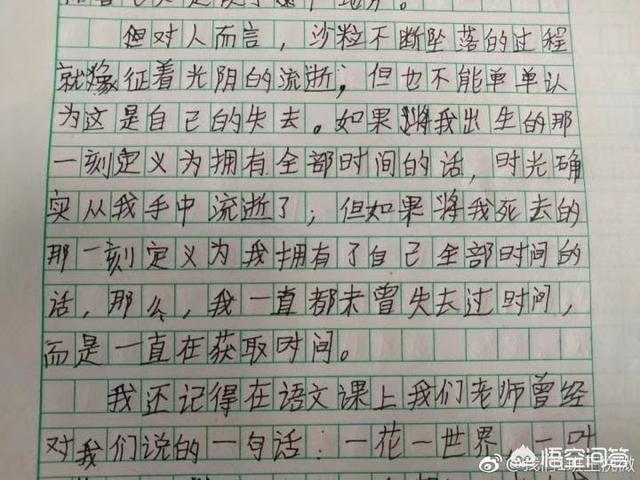 但对人而言，沙粒不断坠落的过程
就像征着光阴的流逝；但也不能单单认
为这是自己的失去。如果将我出生的那
一刻定义为拥有全部时间的话，时光确
实从我手中流逝了；但如果将我死去的
那一刻定义为我拥有了自己全部时间的
话，那么，我一直都未曾失去过时间，
而是一直在获取时间。
我还记得在语文课上我们老师曾经
对我们说的一句话：一花一世界，一叶
悟空问答